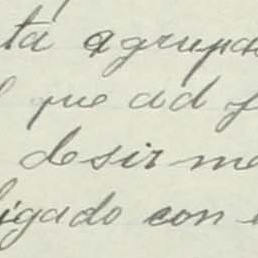 ta agrupa
que ad f
desir me
ligado con e